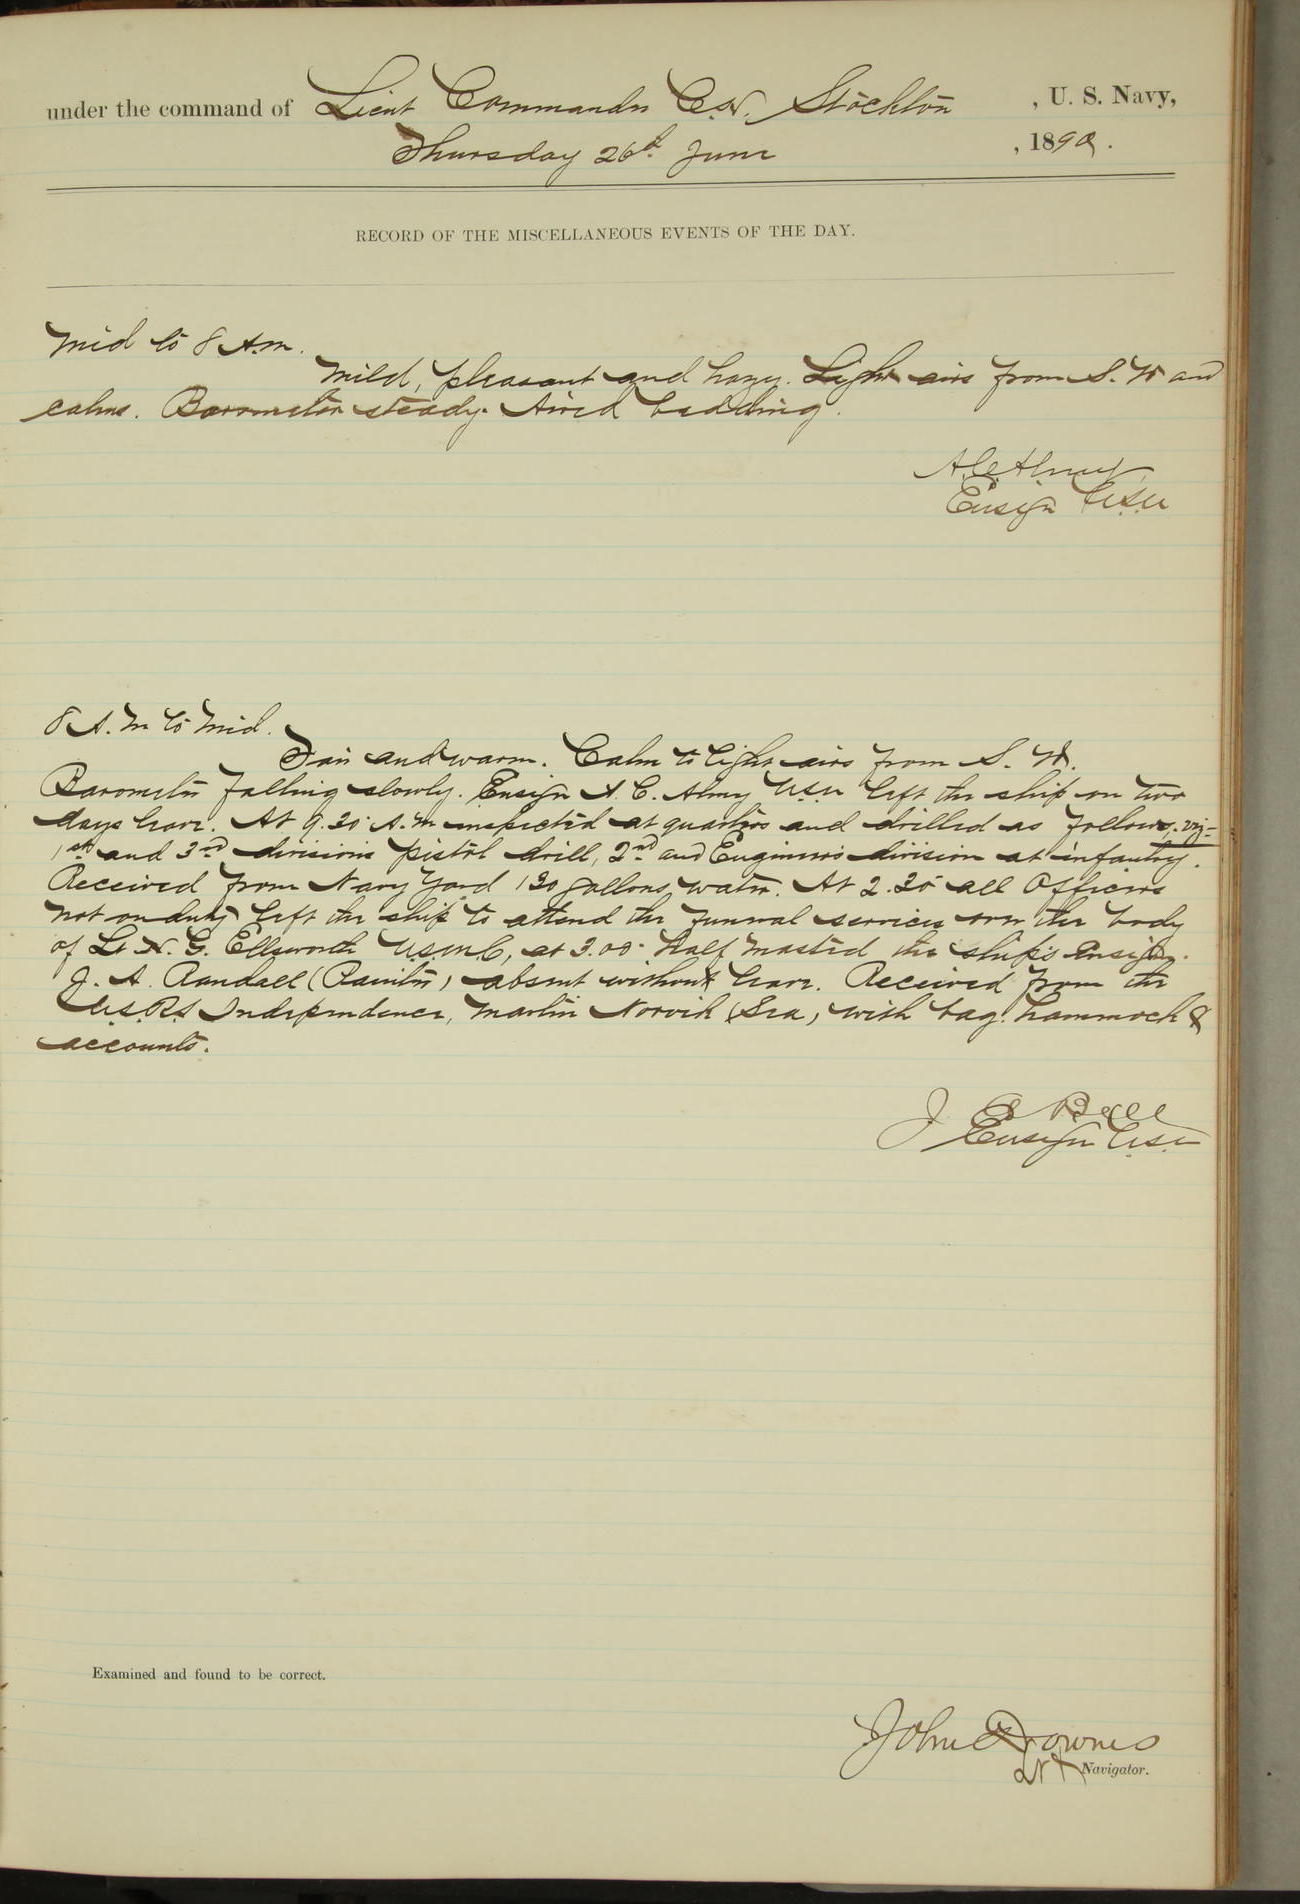 under the command of Lieut Commander C. H. Stockton, U. S. Navy,
Thursday 26th June, 1890.
RECORD OF THE MISCELLANEOUS EVENTS OF THE DAY.
Mid to 8 A.m.
Mild, pleasant and hazy. Light airs from S. W and
calms. Barometer steady. Aired bedding.
A. C. Almy
Ensign U.S.N
8 A. M to Mid.
Fair and warm. Calm to light airs from S. W.
Barometer falling slowly. Ensign A. C. Almy U.S.N left the ship on two
days leave. At 9.30 A.M inspected at quarters and drilled as follows, viz-
1st and 3rd divisions pistol drill, 2nd and Engineers division at infantry.
Received from Navy Yard 130 gallons water. At 2.30 all Officers
not on duty left the ship to attend the funeral services over the body
of Lt H. G. Ellsworth U.S.M.C, at 3.00 half masted the ship's ensign.
J. A. Randall (Painter) absent without leave. Received from the
U.S.R.S Independence, Martin Norvik (Sea) with bag, hammock &
accounts.
J Bell
Ensign U.S.N
Examined and found to be correct.
John Downes
Lt & Navigator.